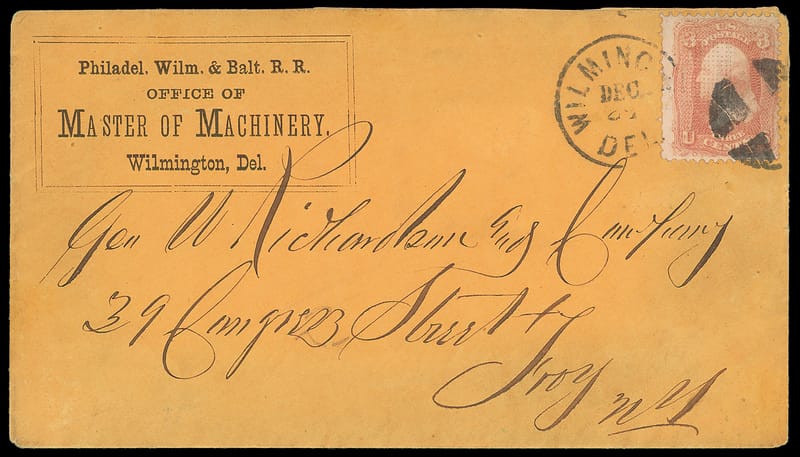 Philadel. Wilm. & Balt. R. R.
OFFICE OF
MASTER OF MACHINERY,
Wilmington, Del.
WILMING
DEC
DEL
3 3
U
CENTS
Geo W Richardson and Company
39 Congress Street
Troy
NY